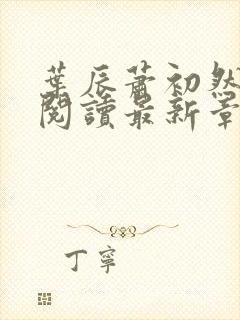 葉辰蕭初然
閱讀最新章
丁寧